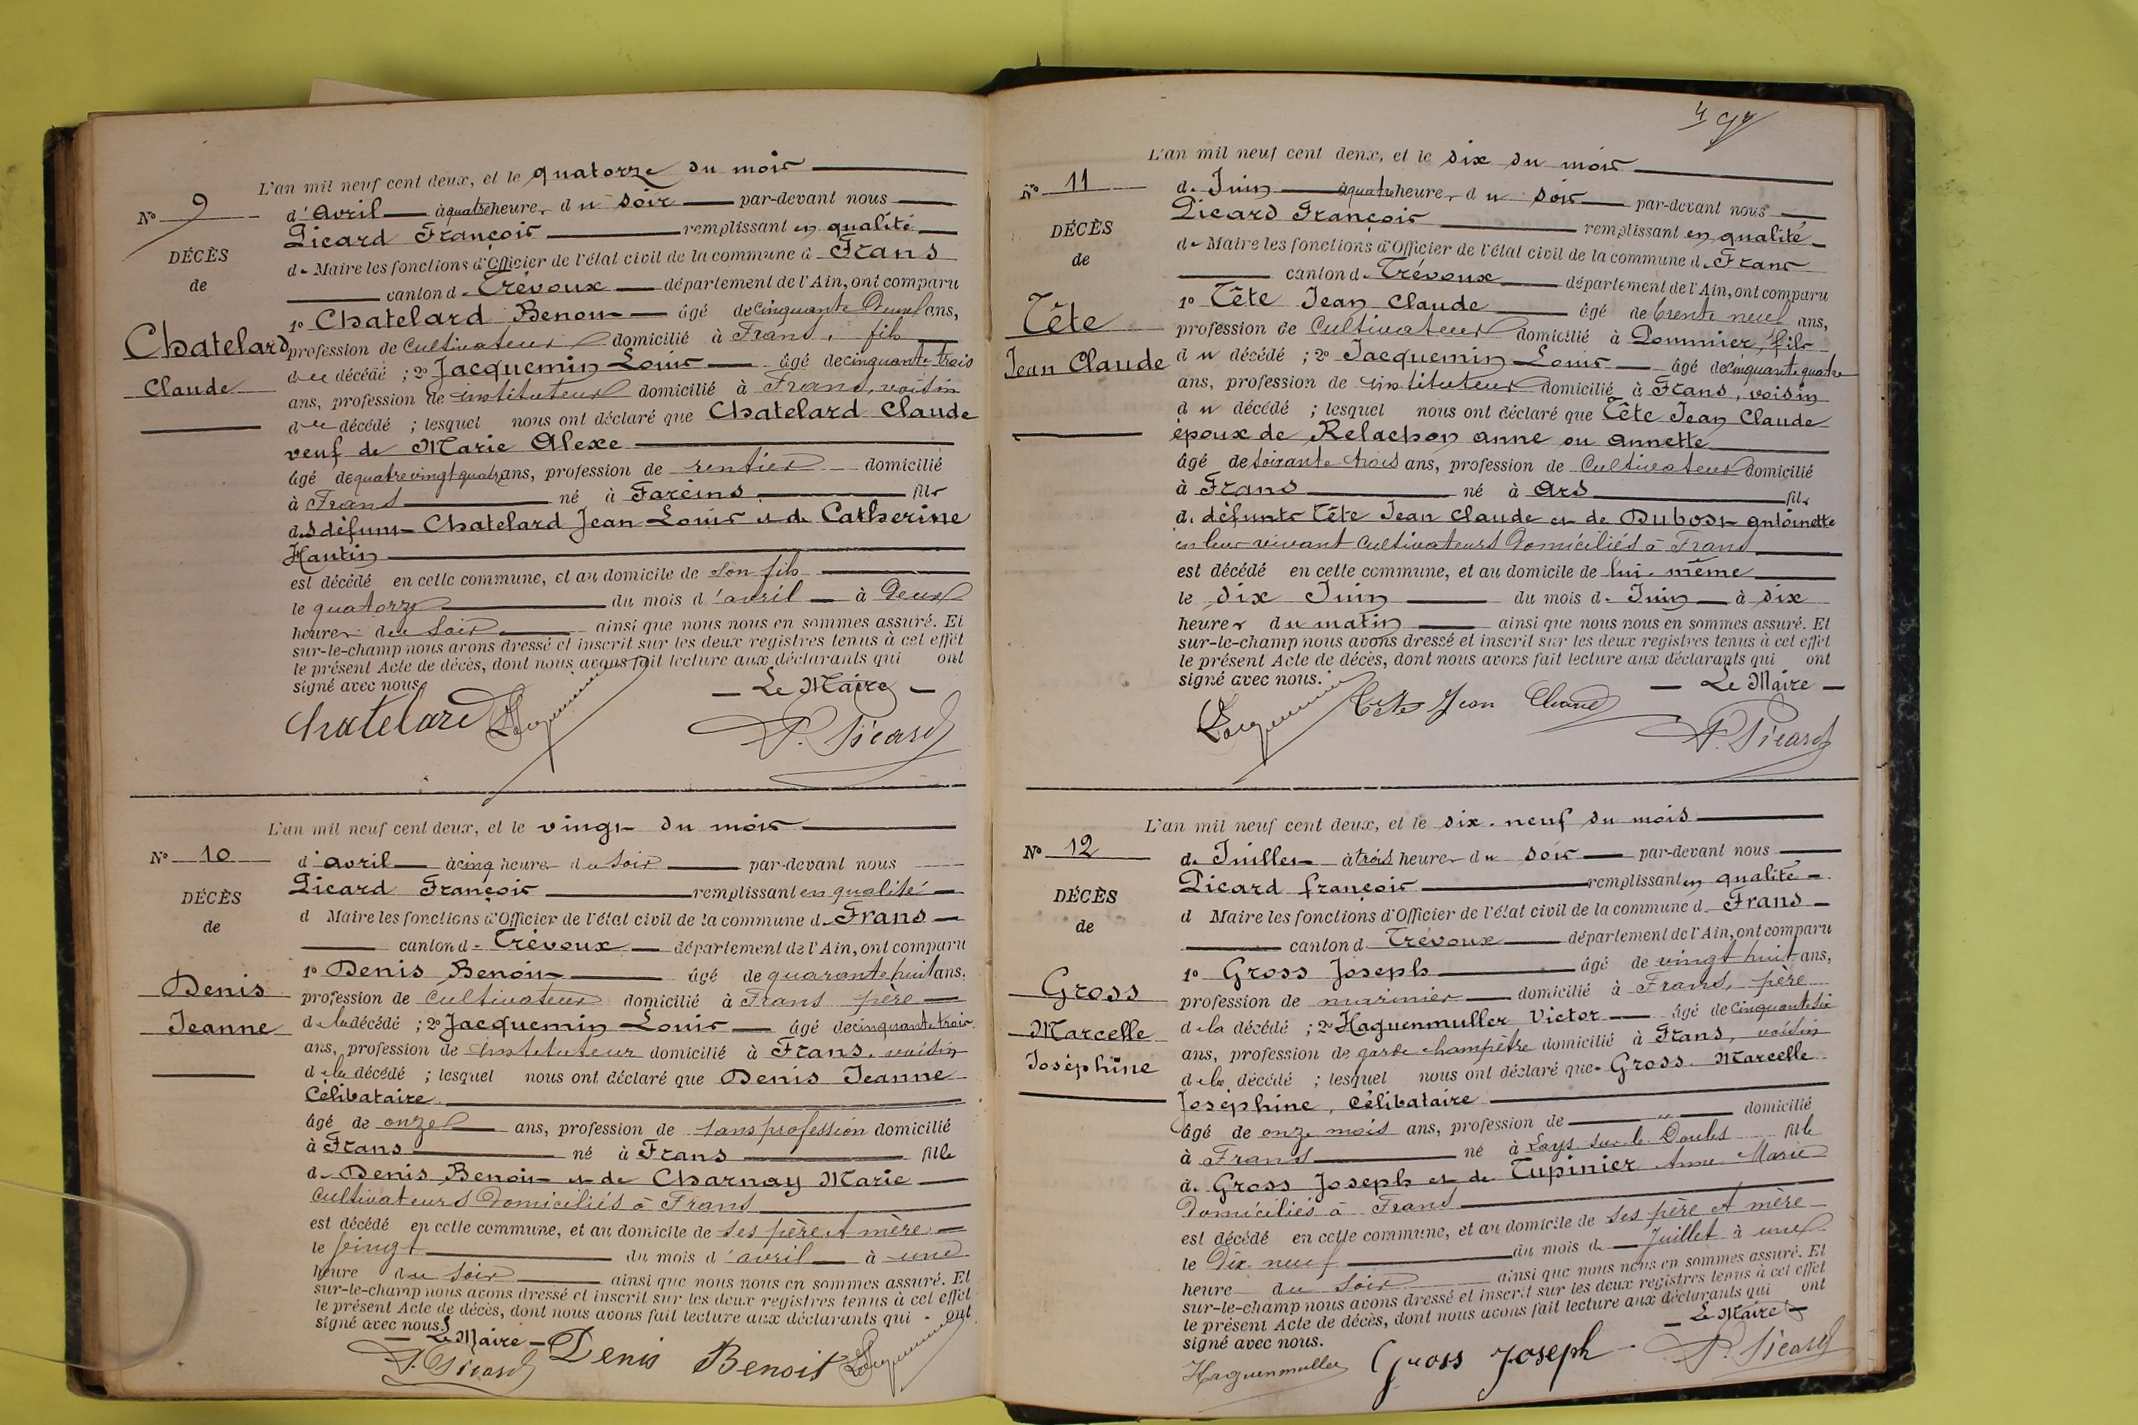 L'an mil neuf cent deux, et le quatorze du mois
N° 9
d'Avril à quatre heures du soir par-devant nous
Picard François remplissant en qualité
DÉCÈS
de
de Maire les fonctions d'Officier de l'état civil de la commune d Frans
canton de Trévoux département de l'Ain, ont comparu
Chatelard
Claude
1° Chatelard Benoit âgé de cinquante deux ans,
profession de Cultivateur domicilié à Frans, fils
du décédé ; 2° Jacquemin Louis âgé de cinquante trois
ans, profession de instituteur domicilié à Frans, voisin
du décédé ; lesquel nous ont déclaré que Chatelard Claude
veuf de Marie Alexe
âgé de quatre vingt quatre ans, profession de rentier domicilié
à Frans né à Fareins fils
des défunts Chatelard Jean Louis et de Catherine
Hantin
est décédé en cette commune, et au domicile de son fils
le quatorze du mois d'avril à deux
heures du soir ainsi que nous nous en sommes assuré. Et
sur-le-champ nous avons dressé et inscrit sur les deux registres tenus à cet effet
le présent Acte de décès, dont nous avons fait lecture aux déclarants qui ont
signé avec nous. Le Maire
Chatelard Jacquemin P. Picard
L'an mil neuf cent deux, et le vingt du mois
N° 10
d'avril à cinq heures du soir par-devant nous
Picard François remplissant en qualité
DÉCÈS
de
d Maire les fonctions d'Officier de l'état civil de la commune d. Frans
canton de Trévoux département de l'Ain, ont comparu
Denis
Jeanne
1° Denis Benoit âgé de quarante huit ans,
profession de cultivateur domicilié à Frans père
de la décédé ; 2° Jacquemin Louis âgé de cinquante trois
ans, profession de instituteur domicilié à Frans, voisin
de la décédé ; lesquel nous ont déclaré que Denis Jeanne
Célibataire
âgé de onze ans, profession de sans profession domicilié
à Frans né à Frans fille
de Denis Benoit et de Charnay Marie
cultivateurs domiciliés à Frans
est décédé en cette commune, et au domicile de ses père et mère
le vingt du mois d'avril à une
heure du soir ainsi que nous nous en sommes assuré. Et
sur-le-champ nous avons dressé et inscrit sur les deux registres tenus à cet effet
le présent Acte de décès, dont nous avons fait lecture aux déclarants qui ont
signé avec nous.
Le Maire
P. Picard Denis Benoit Jacquemin
L'an mil neuf cent deux, et le six du mois
N° 11
de Juin à quatre heures du soir par-devant nous
Picard François remplissant en qualité
DÉCÈS
de
de Maire les fonctions d'Officier de l'état civil de la commune de Frans
canton de Trévoux département de l'Ain, ont comparu
Tête
Jean Claude
1° Tête Jean Claude âgé de trente neuf ans,
profession de Cultivateur domicilié à Pommier, fils
du décédé ; 2° Jacquemin Louis âgé de cinquante quatre
ans, profession de instituteur domicilié à Frans, voisin
du décédé ; lesquel nous ont déclaré que Tête Jean Claude
époux de Relachon anne ou annette
âgé de soixante trois ans, profession de Cultivateur domicilié
à Frans né à Ars fils
de défunts Tête Jean Claude et de Dubost antoinette
en leur vivant cultivateurs domiciliés à Frans
est décédé en cette commune, et au domicile de lui-même
le six Juin du mois de Juin à six
heures du matin ainsi que nous nous en sommes assuré. Et
sur-le-champ nous avons dressé et inscrit sur les deux registres tenus à cet effet
le présent Acte de décès, dont nous avons fait lecture aux déclarants qui ont
signé avec nous. Le Maire
Jacquemin Tête Jean Claude P. Picard
L'an mil neuf cent deux, et le dix-neuf du mois
N° 12
de Juillet à trois heures du soir par-devant nous
Picard françois remplissant en qualité
DÉCÈS
de
d Maire les fonctions d'Officier de l'état civil de la commune d. Frans
canton d. Trévoux département de l'Ain, ont comparu
Gross
Marcelle
Joséphine
1° Gross Joseph âgé de vingt huit ans,
profession de marinier domicilié à Frans, père
de la décédé ; 2° Haguenmuller Victor âgé de cinquante six
ans, profession de garde champêtre domicilié à Frans, voisin
de la décédé ; lesquel nous ont déclaré que Gross Marcelle
Joséphine, célibataire
âgé de onze mois ans, profession de " domicilié
à Frans né à Lays sur le Doubs fille
de Gross Joseph et de Tupinier Anne Marie
domiciliés à Frans
est décédé en cette commune, et au domicile de ses père et mère
le dix neuf du mois de Juillet à une
heure du soir ainsi que nous nous en sommes assuré. Et
sur-le-champ nous avons dressé et inscrit sur les deux registres tenus à cet effet
le présent Acte de décès, dont nous avons fait lecture aux déclarants qui ont
signé avec nous. Le Maire
Haguenmuller Gross Joseph P. Picard